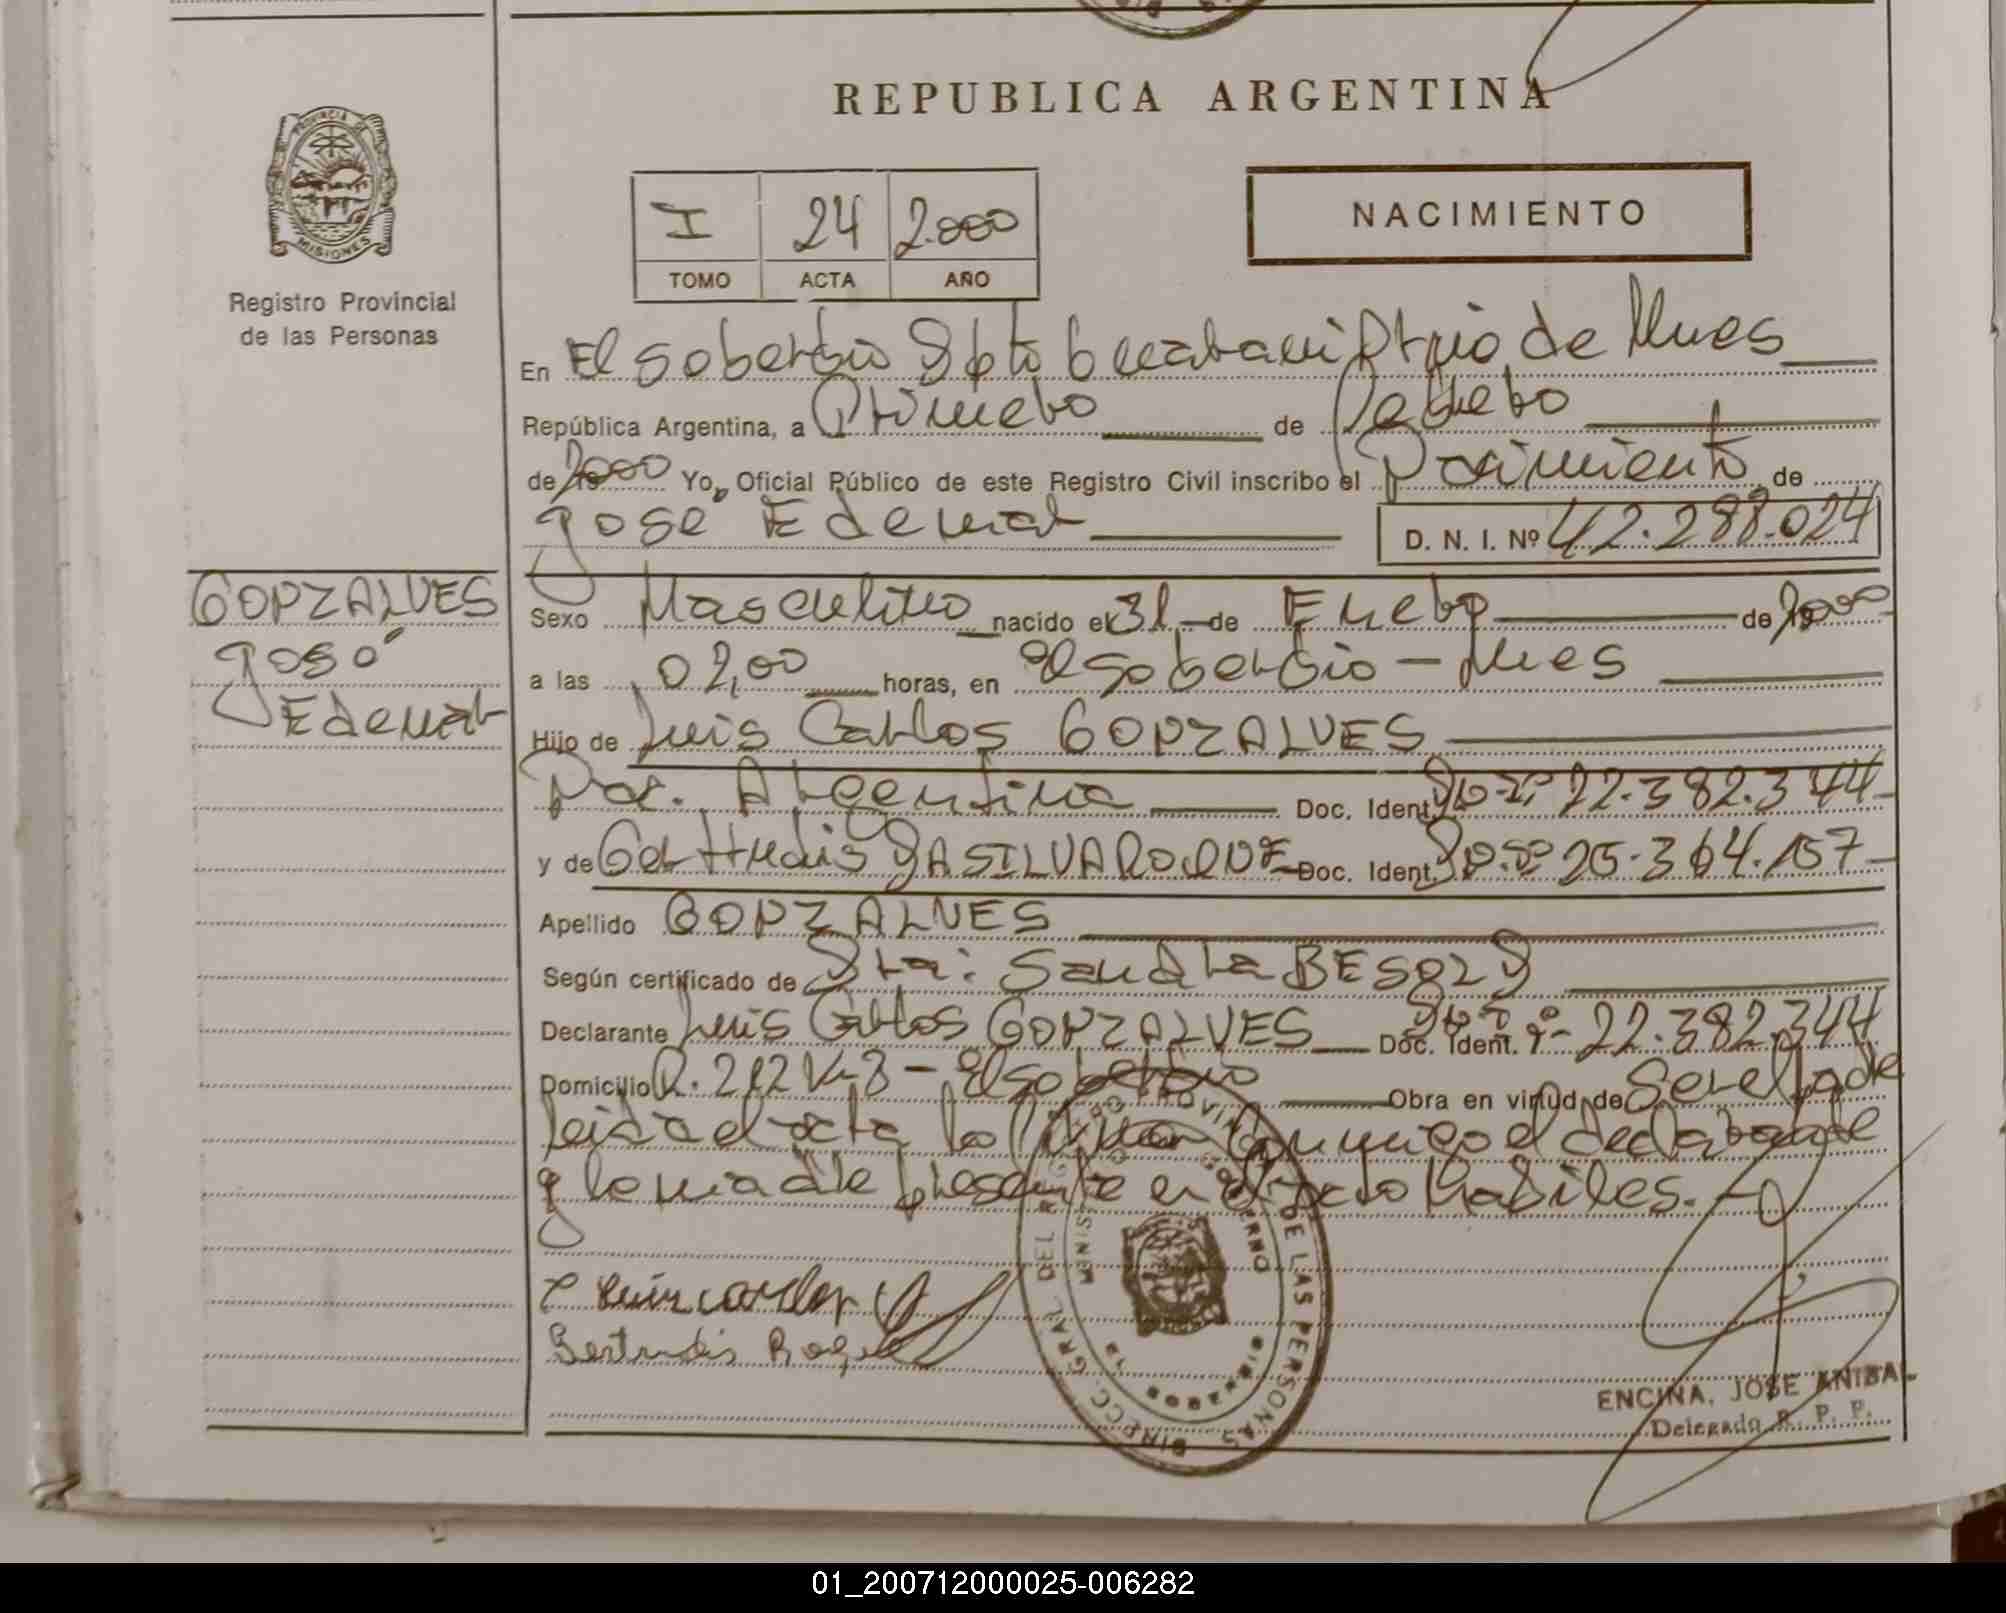 REPUBLICA ARGENTINA
PROVINCIA DE
MISIONES
Registro Provincial
de las Personas
I 24 2.000
TOMO ACTA AÑO
NACIMIENTO
En El Soberbio Dpto Guarani Pcia de Mnes
República Argentina, a Primero de Febrero
de 2000 Yo, Oficial Público de este Registro Civil inscribo el Nacimiento de
José Edemar D. N. I. Nº 42.288.024
GONZALVES
José
Edemar
Sexo Masculino nacido el 31 de Enero de 2000
a las 02,00 horas, en El Soberbio - Mnes
Hijo de Luis Carlos GONZALVES
Nac. Argentina Doc. Ident. 22.382.344
y de Gertrudis DA SILVA ROQUE Doc. Ident. 25.364.157
Apellido GONZALVES
Según certificado de Dra: Sandra
Declarante Luis Carlos GONZALVES Doc. Ident. 22.382.344
Domicilio R. 212 Km 8 - El Soberbio Obra en virtud de Ser el padre
leida el acta la firman conmigo el declarante
y la madre presente en el acto habiles.
Luis carlos
Gertrudis Roque
DIRECC. GRAL. DEL REGISTRO PROVINCIAL DE LAS PERSONAS
MINISTERIO DE GOBIERNO
EL SOBERBIO
ENCINA, JOSE ANIBAL
Delegado R. P. P.
01_200712000025-006282